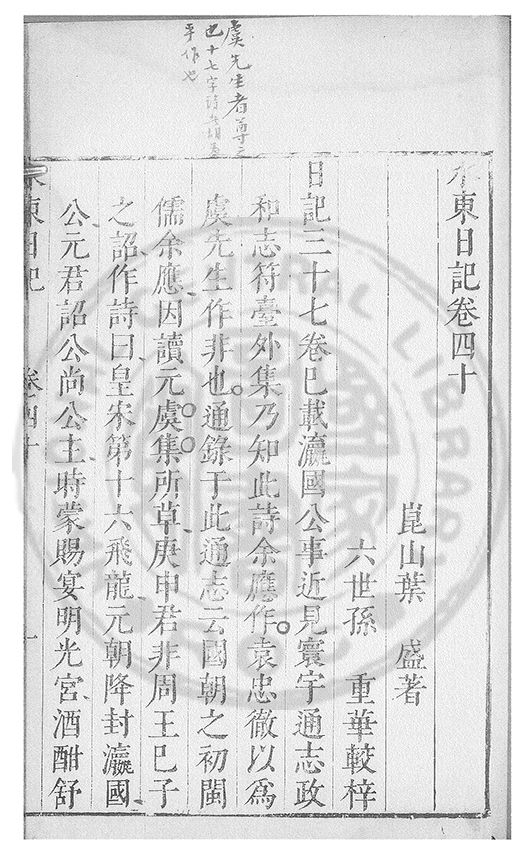 虞先生者尊之
也十七字詩
平作也
水東日記卷四十
崑山葉　盛著
六世孫　重華較梓
日記三十七卷已載瀛國公事近見寰宇通志政
和志符臺外集乃知此詩余應作袁忠徹以為
虞先生作非也通錄于此通志云國朝之初閩
儒余應因讀元虞集所草庚申君非周王已子
之詔作詩曰皇宋第十六飛龍元朝降封瀛國
公元君詔公尚公主時蒙賜宴明光宮酒酣舒
水東日記　卷四十　一